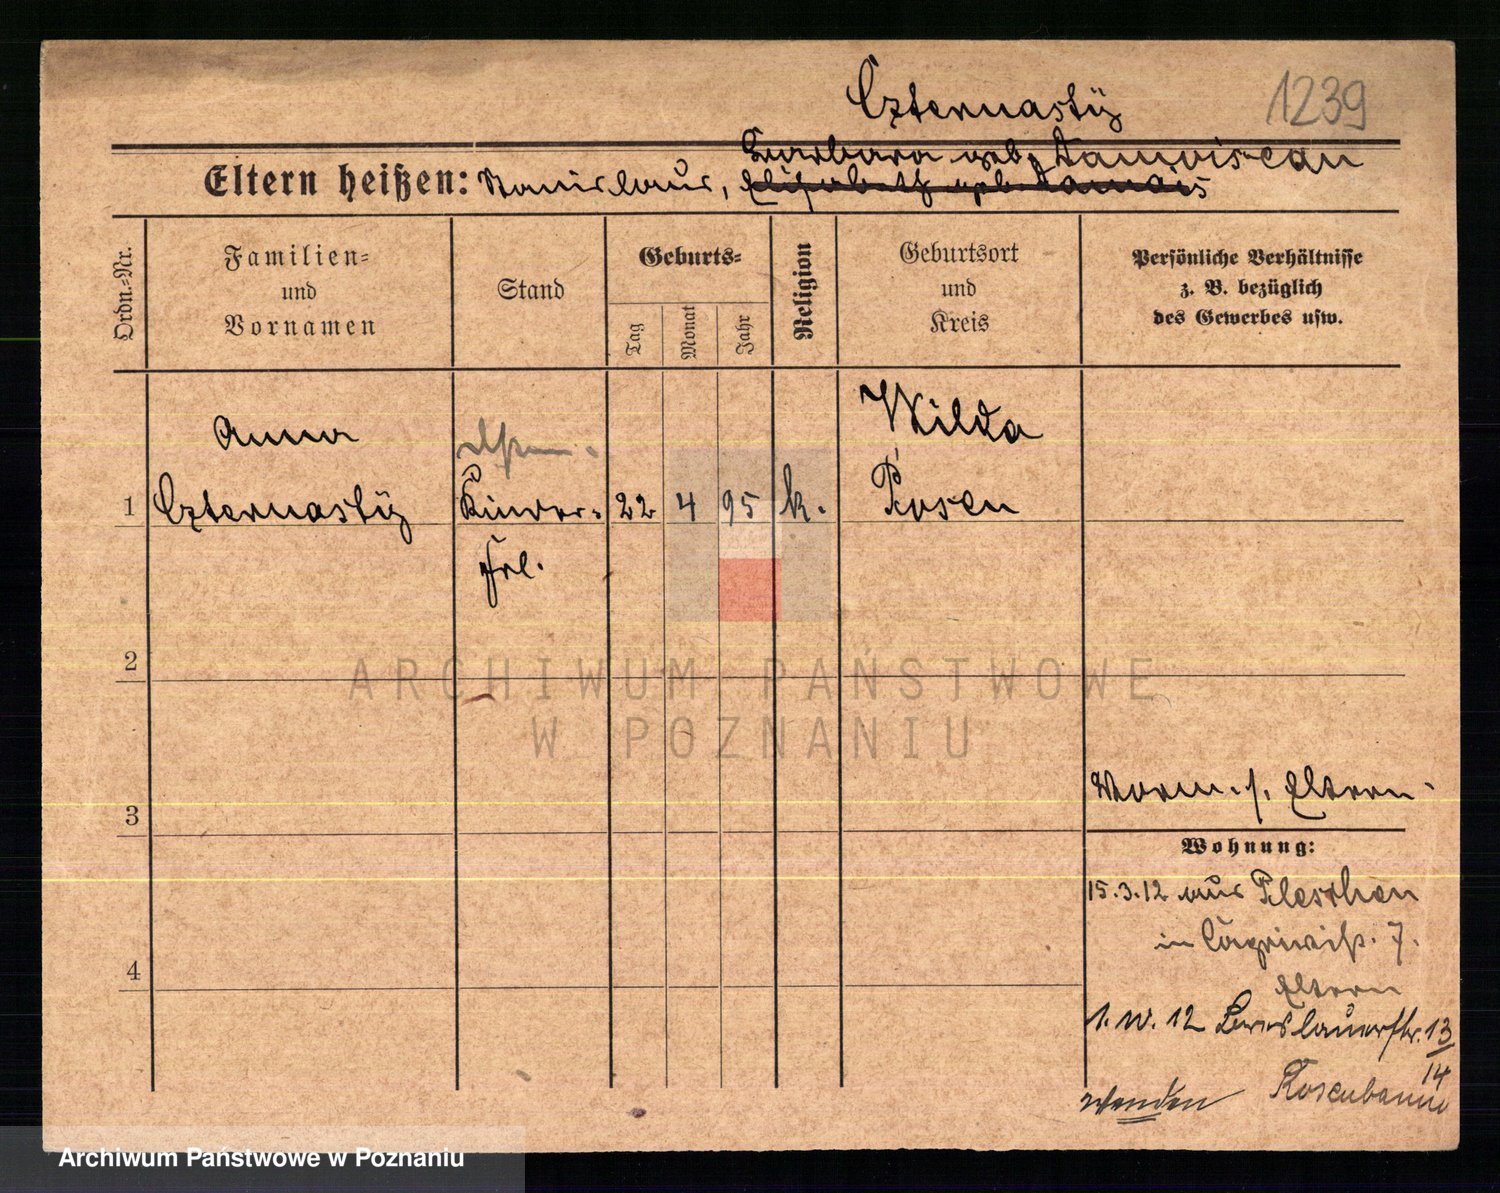 Czternastÿ
1239
Barbara geb.
Eltern heißen: Stanislaus, Elisabeth geb.
Ordn.-Nr.
Familien- und Vornamen
Stand
Geburts-
Tag
Monat
Jahr
Religion
Geburtsort und Kreis
Persönliche Verhältnisse
z. B. bezüglich
des Gewerbes usw.
Anna
Wilda
1 Czternastÿ Kinder- 22 4 95 k. Posen
Frl.
2
ARCHIWUM PAŃSTWOWE
W POZNANIU
3
Vorm. s. Eltern.
Wohnung:
15.3.12 aus Pleschen
in 7.
4
Eltern
1. 12 Breslauerstr. 13/14
Rosenbaum
wenden
Archiwum Państwowe w Poznaniu